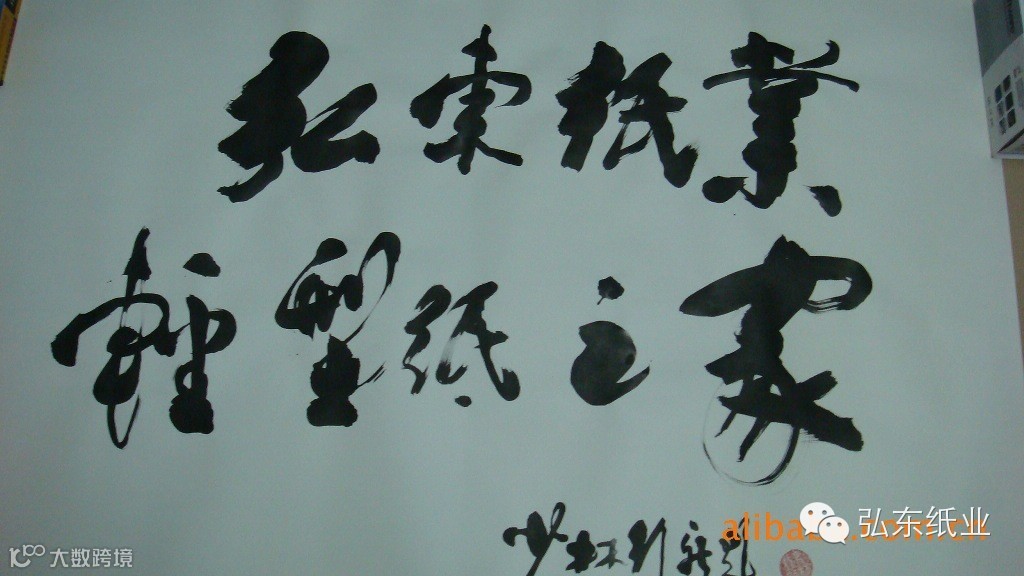 弘東紙業
輕型紙之家
少林
alibaba.com.cn
弘东纸业
大数跨境